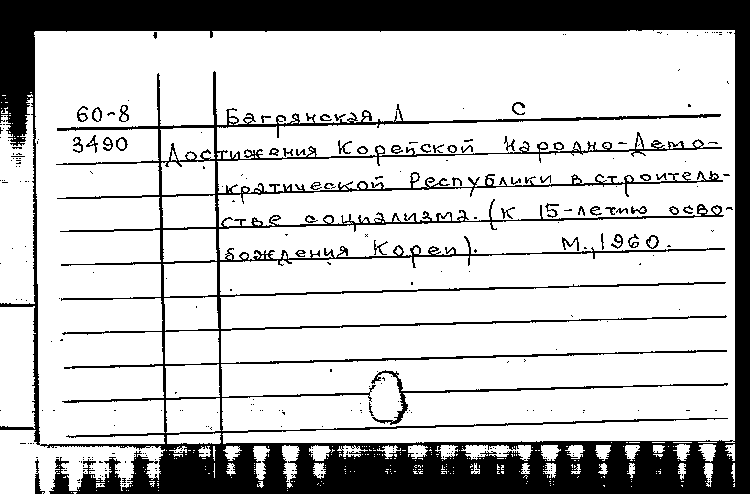 60-8 Багрянская, Л С
3490 Достижения Корейской Народно-Демо-
кратической Республики в строитель-
стве социализма. (К 15-летию осво-
бождения Кореи). М., 1960.